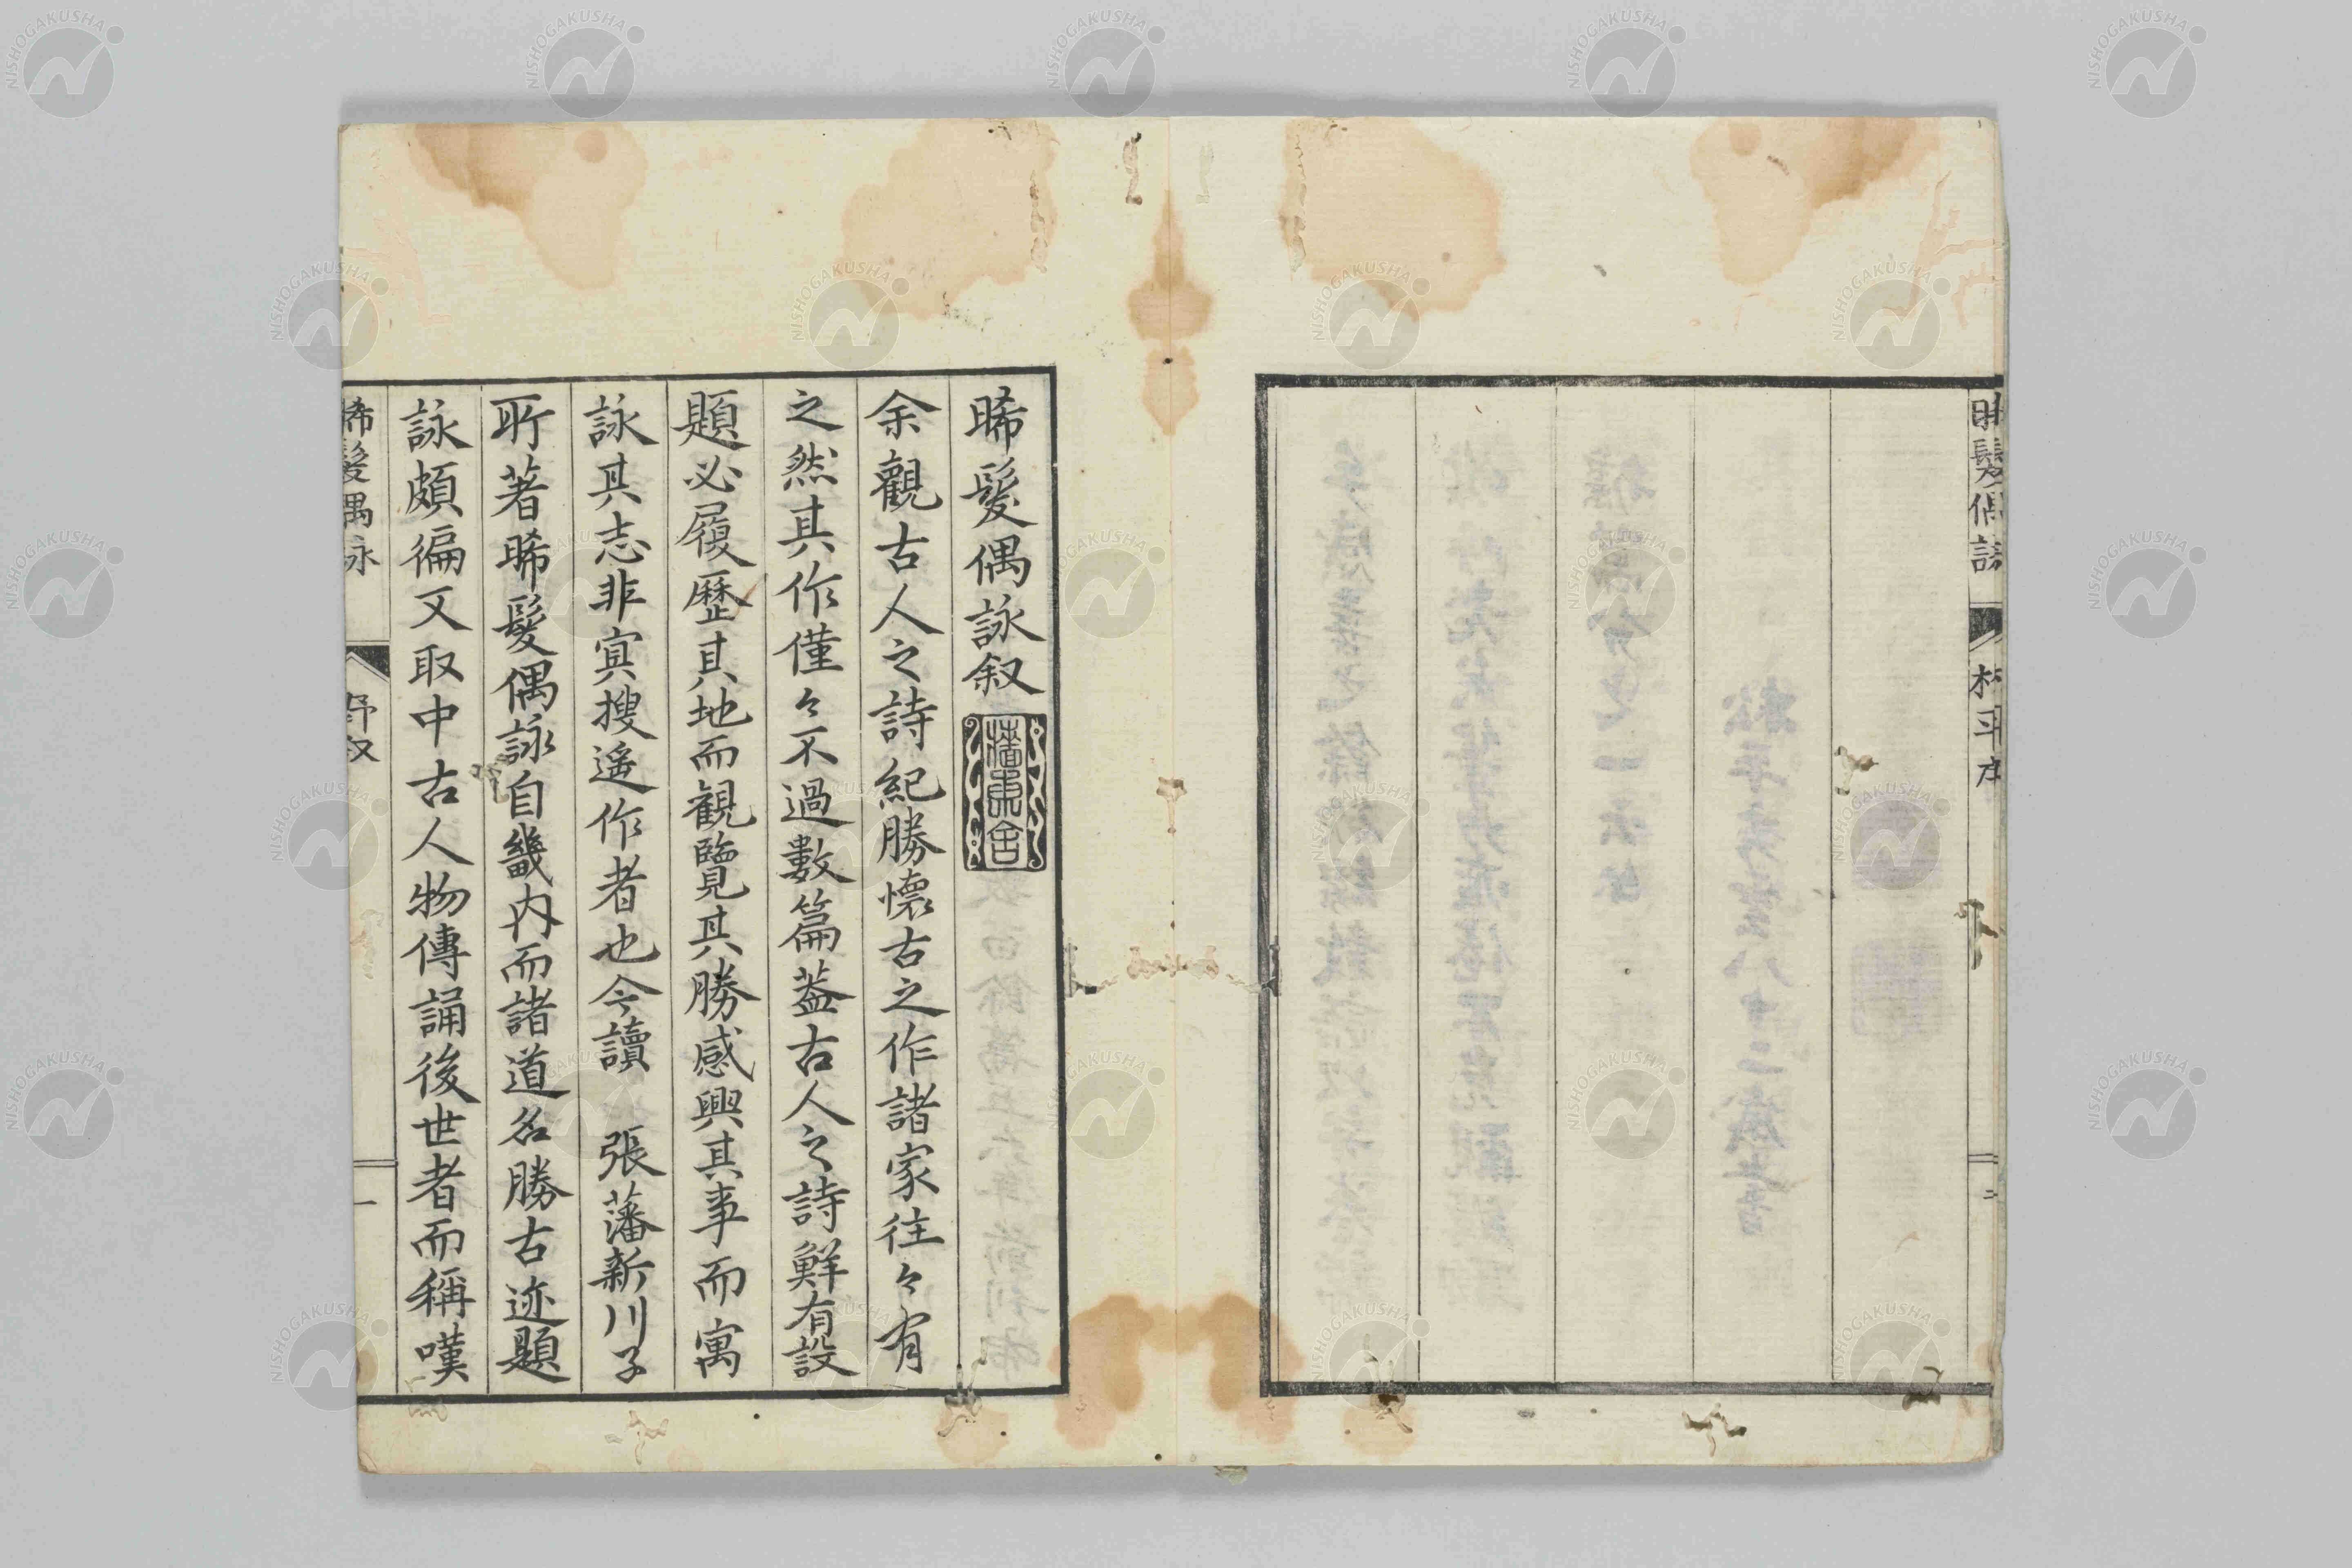 晞髮偶詠
二
晞髮偶詠叙
余觀古人之詩紀勝懷古之作諸家往々有
之然其作僅々不過數篇蓋古人之詩鮮有設
題必履歷其地而觀覽其勝感興其事而寓
詠其志非寘搜遙作者也今讀 張藩新川子
所著晞髮偶詠自畿内而諸道名勝古迹題
詠頗徧又取中古人物傳誦後世者而稱嘆
晞髮偶詠
一
NISHOGAKUSHA